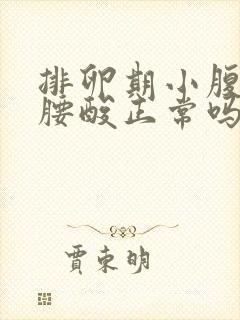 排卵期小腹
腰酸正常吗
贾东明